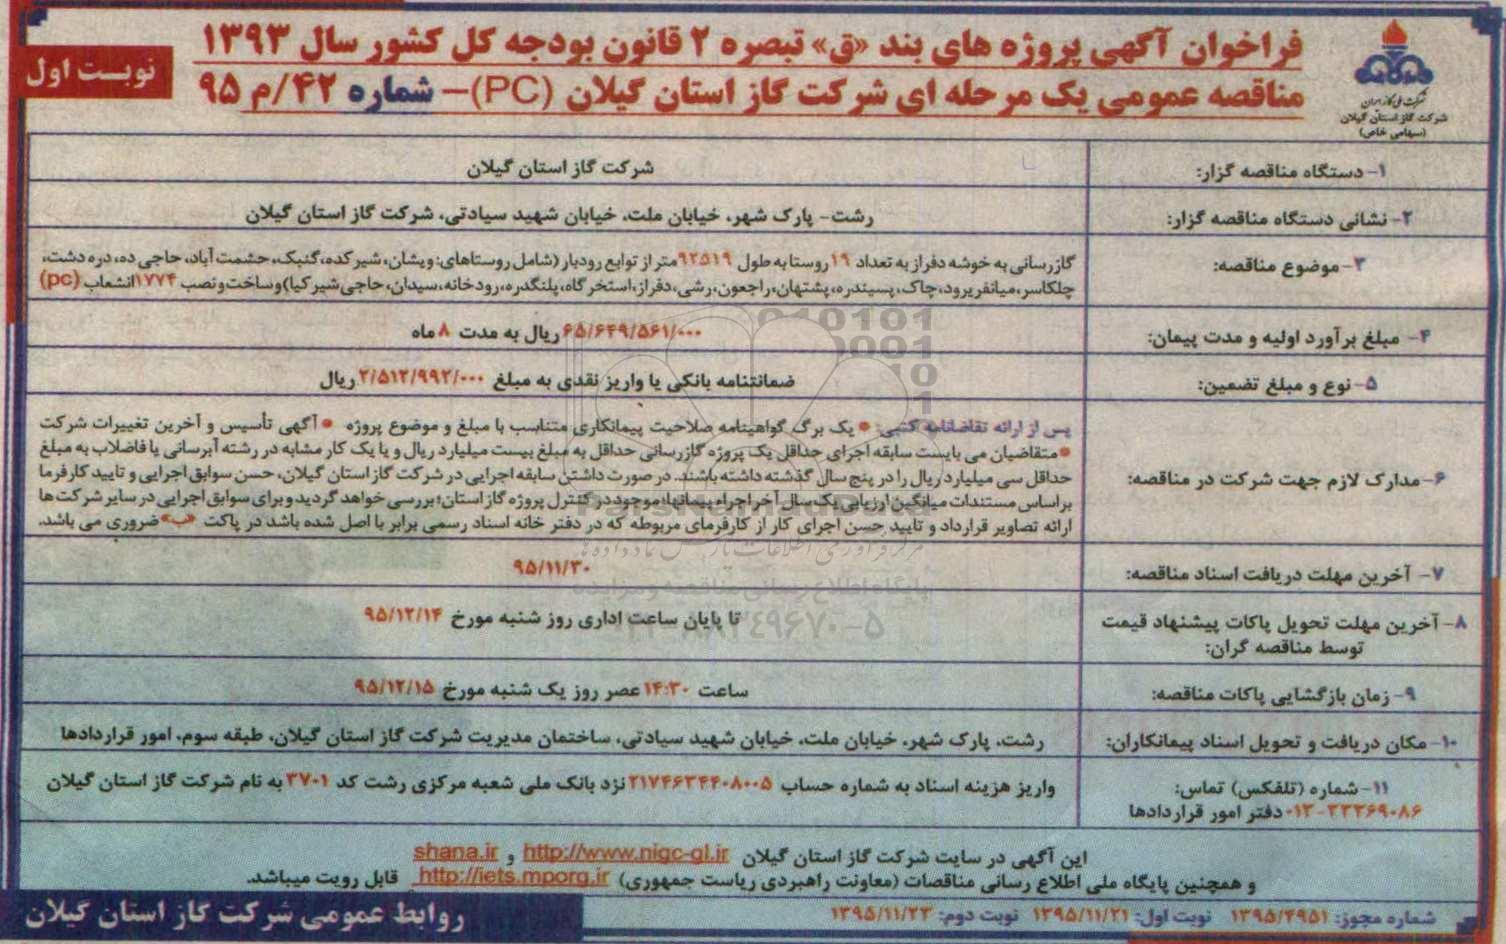 فراخوان آگهی پروژه های بند «ق» تبصره ۲ قانون بودجه کل کشور سال ۱۳۹۳
مناقصه عمومی یک مرحله ای شرکت گاز استان گیلان (PC)– شماره ۴۲/م ۹۵
نوبت اول
شرکت ملی گاز ایران
شرکت گاز استان گیلان
(سهامی خاص)
۱- دستگاه مناقصه گزار:
شرکت گاز استان گیلان
۲- نشانی دستگاه مناقصه گزار:
رشت- پارک شهر، خیابان ملت، خیابان شهید سیادتی، شرکت گاز استان گیلان
۳-موضوع مناقصه:
گازرسانی به خوشه دفراز به تعداد ۱۹ روستا به طول ۹۲۵۱۹متر از توابع رودبار (شامل روستاهای: ویشان، شیرکده، گنبک، حشمت آباد، حاجی ده، دره دشت،
چلکاسر، میانفریرود، چاک، پسیندره، پشتهان، راجعون، رشی، دفراز، استخرگاه، پلنگدره، رودخانه، سیدان، حاجی شیرکیا) و ساخت و نصب ۱۷۷۴انشعاب (pc)
۴- مبلغ برآورد اولیه و مدت پیمان:
۶۵/۶۴۹/۵۶۱/۰۰۰ ریال به مدت ۸ ماه
۵-نوع و مبلغ تضمین:
ضمانتنامه بانکی یا واریز نقدی به مبلغ ۲/۵۱۲/۹۹۲/۰۰۰ ریال
۶-مدارک لازم جهت شرکت در مناقصه:
پس از ارائه تقاضانامه کتبی: • یک برگ گواهینامه صلاحیت پیمانکاری متناسب با مبلغ و موضوع پروژه • آگهی تأسیس و آخرین تغییرات شرکت
•متقاضیان می بایست سابقه اجرای حداقل یک پروژه گازرسانی حداقل به مبلغ بیست میلیارد ریال و یا یک کار مشابه در رشته آبرسانی یا فاضلاب به مبلغ
حداقل سی میلیارد ریال را در پنج سال گذشته داشته باشند. در صورت داشتن سابقه اجرایی در شرکت گاز استان گیلان، حسن سوابق اجرایی و تایید کارفرما
براساس مستندات میانگین ارزیابی یک سال آخر اجراء پیمانها؛ موجود در کنترل پروژه گاز استان؛ بررسی خواهد گردید و برای سوابق اجرایی در سایر شرکت ها
ارائه تصاویر قرارداد و تایید حسن اجرای کار از کارفرمای مربوطه که در دفتر خانه اسناد رسمی برابر با اصل شده باشد در پاکت «ب» ضروری می باشد.
۷- آخرین مهلت دریافت اسناد مناقصه:
۹۵/۱۱/۳۰
۸- آخرین مهلت تحویل پاکات پیشنهاد قیمت
توسط مناقصه گران:
تا پایان ساعت اداری روز شنبه مورخ ۹۵/۱۲/۱۴
۹- زمان بازگشایی پاکات مناقصه:
ساعت ۱۴:۳۰ عصر روز یک شنبه مورخ ۹۵/۱۲/۱۵
۱۰- مکان دریافت و تحویل اسناد پیمانکاران:
رشت، پارک شهر، خیابان ملت، خیابان شهید سیادتی، ساختمان مدیریت شرکت گاز استان گیلان، طبقه سوم، امور قراردادها
۱۱- شماره (تلفکس) تماس:
۰۱۳-۳۳۳۶۹۰۸۶ دفتر امور قراردادها
واریز هزینه اسناد به شماره حساب ۲۱۷۴۶۳۴۴۰۸۰۰۵ نزد بانک ملی شعبه مرکزی رشت کد ۳۷۰۱ به نام شرکت گاز استان گیلان
این آگهی در سایت شرکت گاز استان گیلان http://www.nigc-gl.ir و shana.ir
و همچنین پایگاه ملی اطلاع رسانی مناقصات (معاونت راهبردی ریاست جمهوری) http://iets.mporg.ir قابل رویت میباشد.
شماره مجوز: ۱۳۹۵/۴۹۵۱ نوبت اول: ۱۳۹۵/۱۱/۲۱ نوبت دوم: ۱۳۹۵/۱۱/۲۳
روابط عمومی شرکت گاز استان گیلان